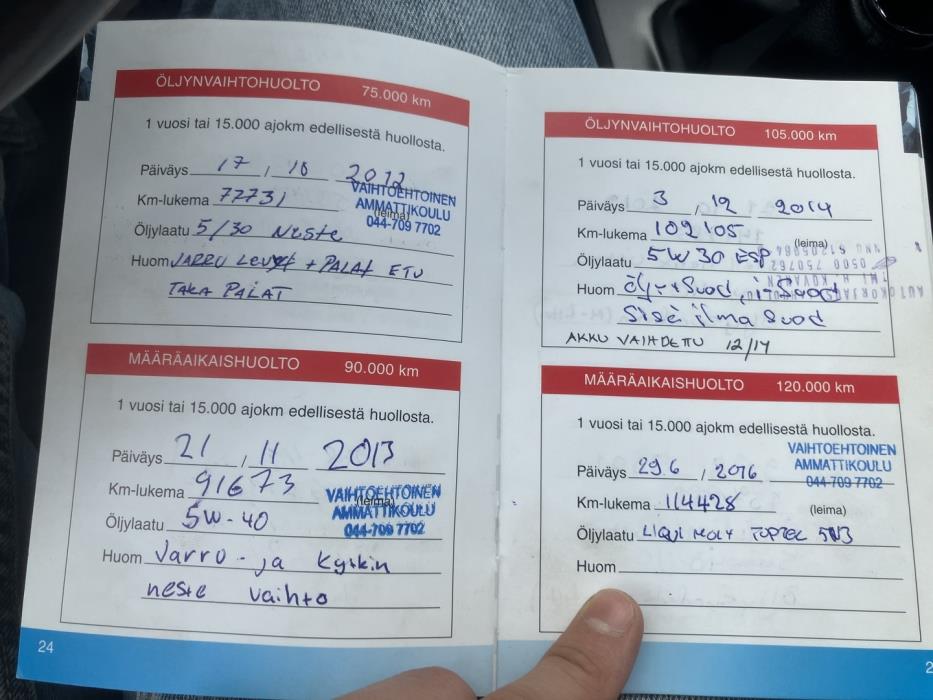 ÖLJYNVAIHTOHUOLTO 75.000 km
1 vuosi tai 15.000 ajokm edellisestä huollosta.
Päiväys 17 , 10 2012
VAIHTOEHTOINEN
Km-lukema 77731
AMMATTIKOULU
(leima)
044-709 7702
Öljylaatu 5/30 Neste
Huom JARRU LEVYT + PALAT ETU
TAKA PALAT
MÄÄRÄAIKAISHUOLTO 90.000 km
1 vuosi tai 15.000 ajokm edellisestä huollosta.
Päiväys 21 , 11 2013
Km-lukema 91673
VAIHTOEHTOINEN
(leima)
AMMATTIKOULU
Öljylaatu 5W-40
044-709 7702
Huom Jarru - ja kytkin
neste vaihto
24
ÖLJYNVAIHTOHUOLTO 105.000 km
1 vuosi tai 15.000 ajokm edellisestä huollosta.
Päiväys 3 , 12 2014
Km-lukema 102105
(leima)
Öljylaatu 5W30 ESP
Huom öljy+Suod, iLSuod
Sisä ilma Suod
AKKU VAIHDETTU 12/14
MÄÄRÄAIKAISHUOLTO 120.000 km
1 vuosi tai 15.000 ajokm edellisestä huollosta.
VAIHTOEHTOINEN
AMMATTIKOULU
Päiväys 29.6 , 2016
044-709 7702
Km-lukema 114428
(leima)
Öljylaatu LIQUI MOLY TOPTEC
Huom
2